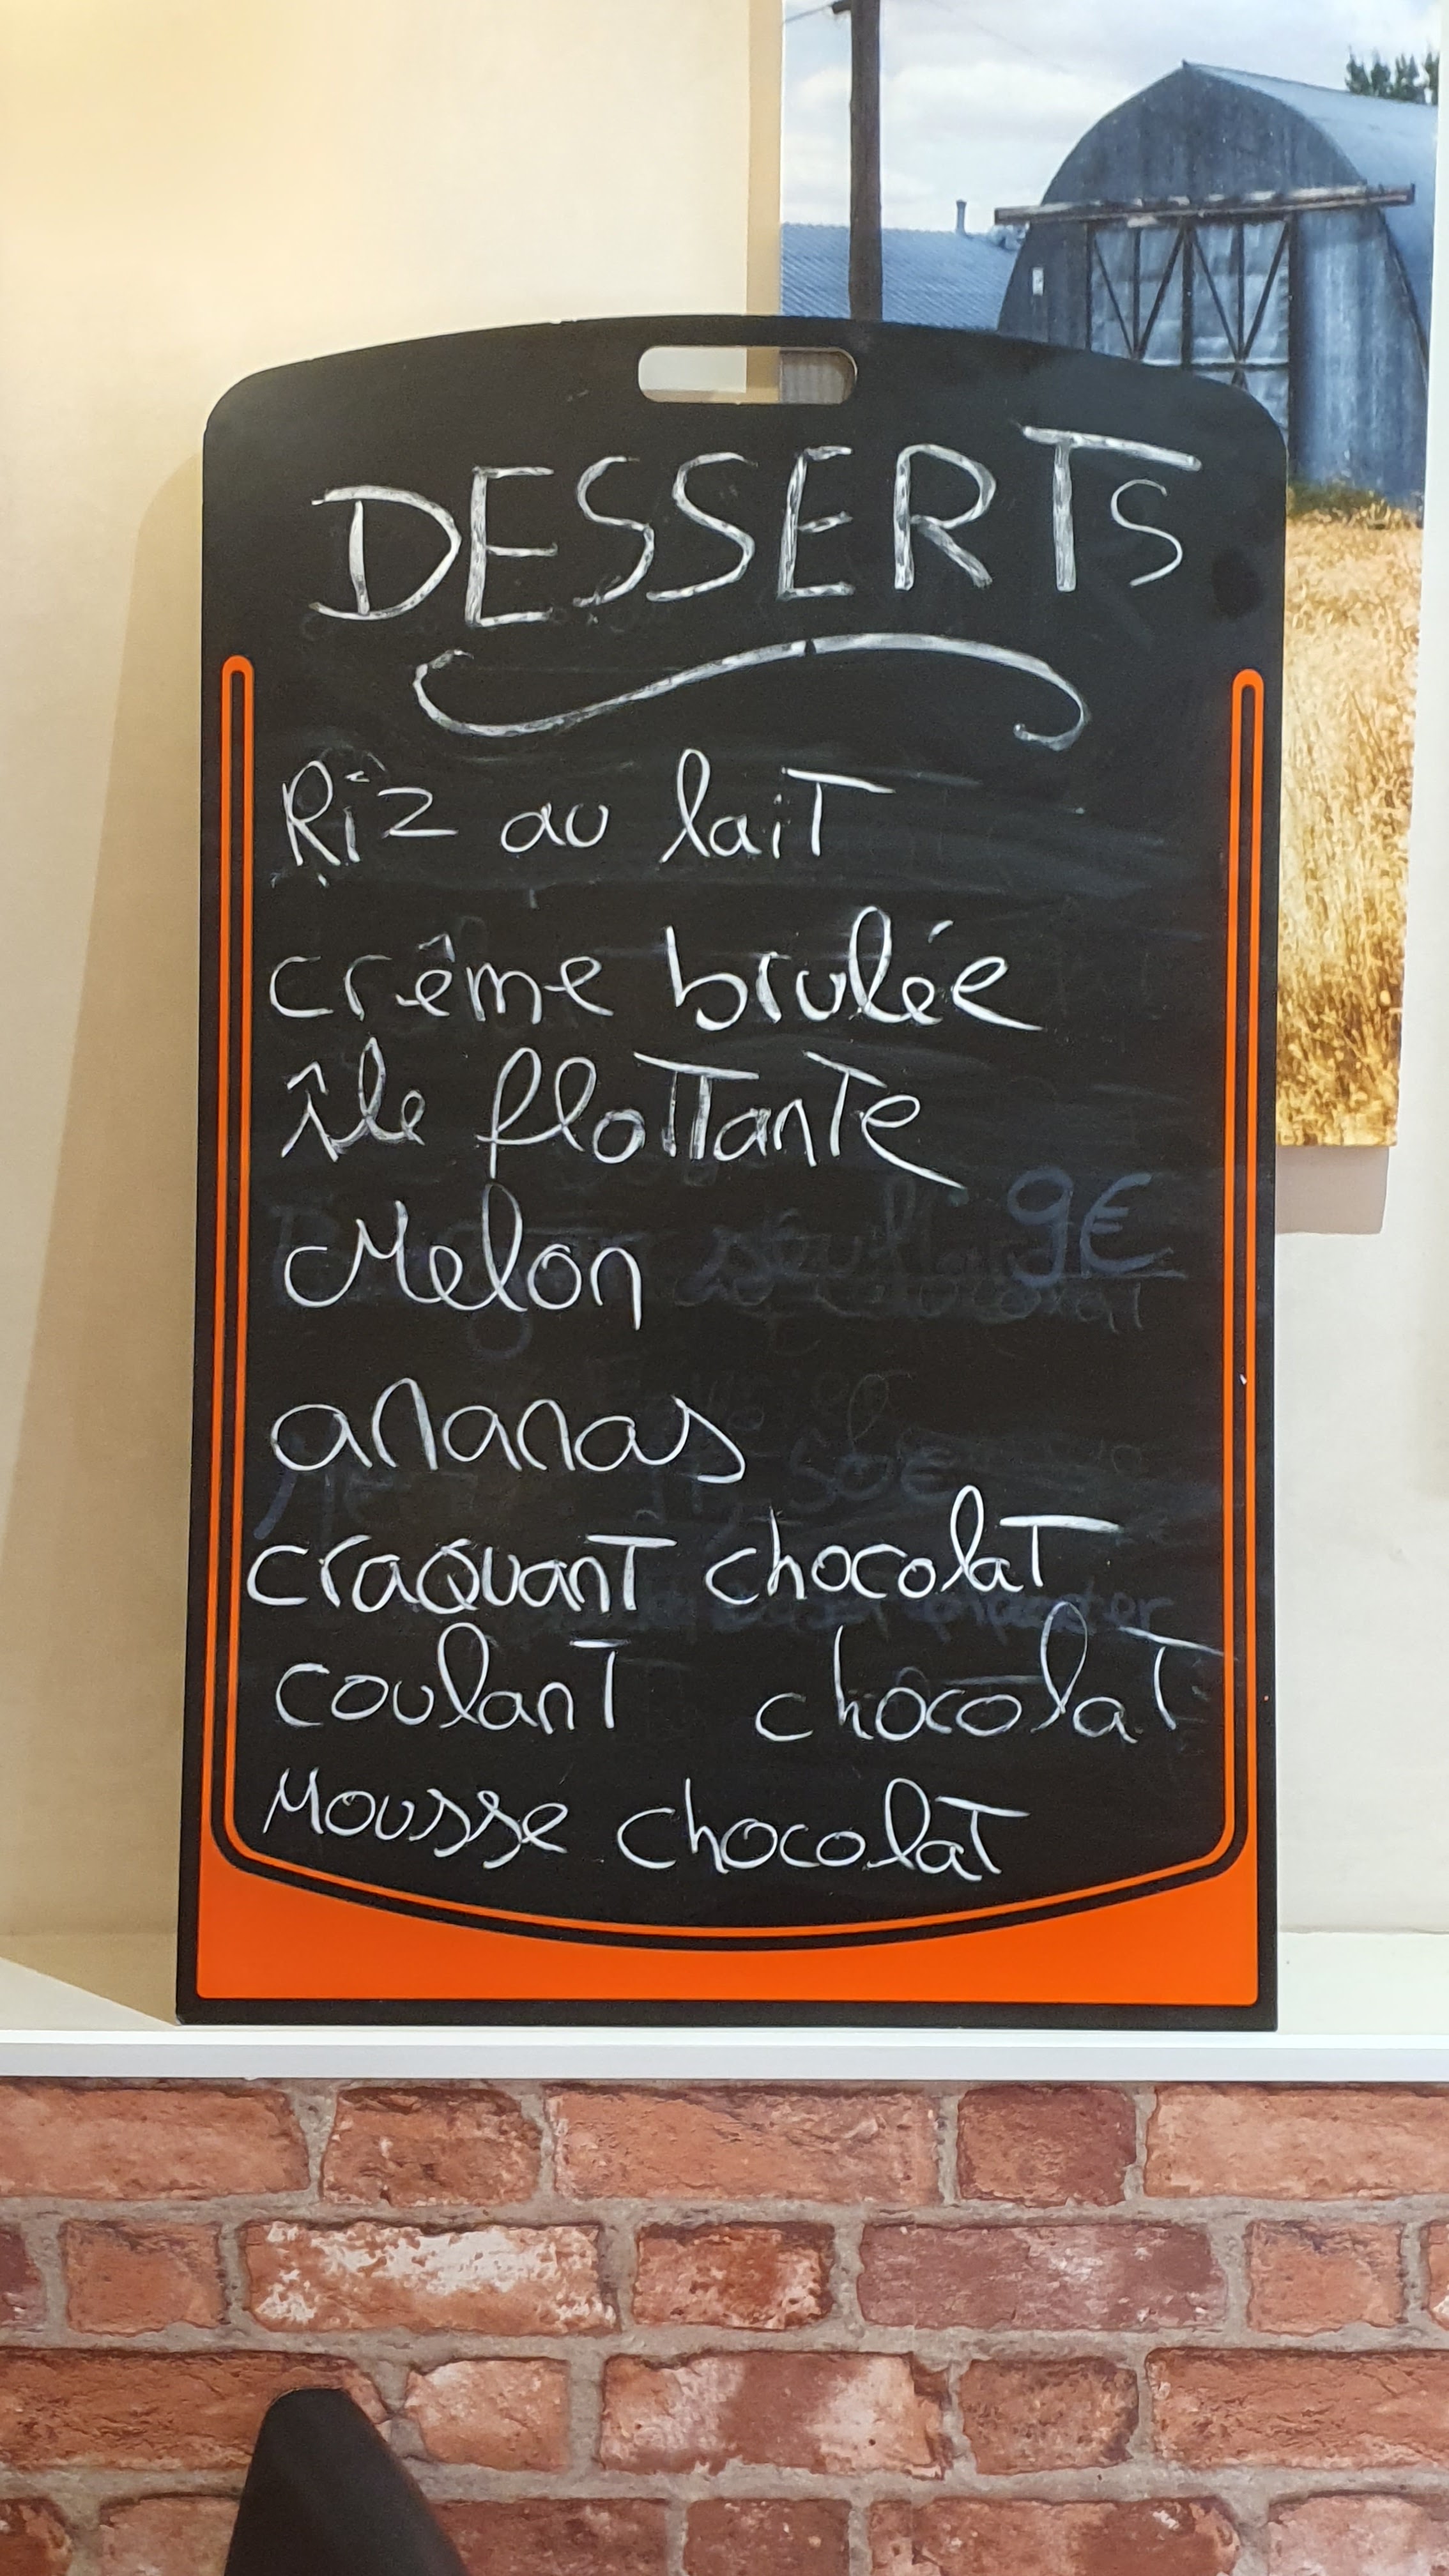 DESSERTS
Riz au lait
crême brulée
île flottante
Melon
9€
ananas
craquant chocolat
coulant chocolat
Mousse chocolat